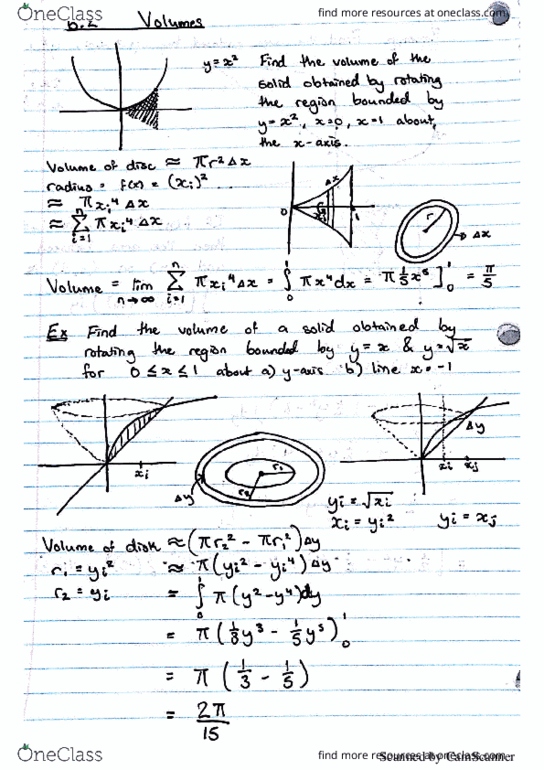 OneClass
find more resources at oneclass.com
6.2 Volumes
y = x²
Find the volume of the
solid obtained by rotating
the region bounded by
y = x², x=0, x=1 about,
the x-axis.
Volume of disc ≈ πr²Δx
radius = f(x) = (xi)²
≈ πxi⁴Δx
≈ Σ πxi⁴Δx
n
i=1
Δx
0
1
r
Δx
Volume = lim n→∞ Σ i=1 n πxi⁴Δx = ∫₀¹ πx⁴dx = π 1/5 x⁵]₀¹ = π/5
Ex Find the volume of a solid obtained by
rotating the region bounded by y = x & y=√x
for 0 ≤ x ≤ 1 about a) y-axis b) line x = -1
xi
Δy
r1
r2
Δy
xi xj
yi = √xi
xi = yi² yi = xj
Volume of disk ≈ (πr2² - πr1²)Δy
r1 = yi² ≈ π(yi² - yi⁴)Δy
r2 = yi = ∫₀¹ π(y²-y⁴)dy
= π(1/3 y³ - 1/5 y⁵)₀¹
= π(1/3 - 1/5)
= 2π/15
OneClass
find more resources at oneclass.com
Scanned by CamScanner